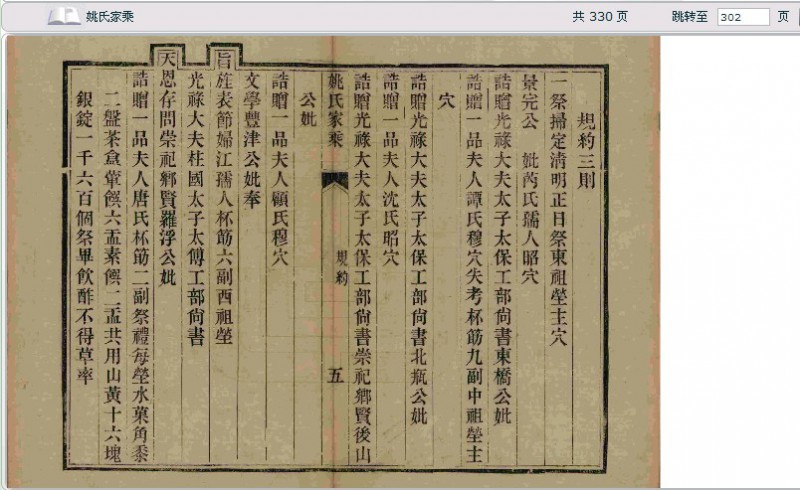 姚氏家乘
共 330 页
跳转至 302 页
規約三則
一祭掃定清明正日祭東祖塋主穴
景完公 妣芮氏孺人昭穴
誥贈光祿大夫太子太保工部尚書東橋公妣
誥贈一品夫人譚氏穆穴失考杯筯九副中祖塋主
穴
誥贈光祿大夫太子太保工部尚書北瓶公妣
誥贈一品夫人沈氏昭穴
誥贈光祿大夫太子太保工部尚書崇祀鄉賢後山
姚氏家乘
規約
五
公妣
誥贈一品夫人顧氏穆穴
文學豐津公妣奉
旨旌表節婦江孺人杯筯六副西祖塋
光祿大夫柱國太子太傅工部尚書
天恩存問崇祀鄉賢羅浮公妣
誥贈一品夫人唐氏杯筯二副祭禮每塋水菓角黍
二盤茶食葷饌六盂素饌二盂共用山黃十六塊
銀錠一千六百個祭畢飲酢不得草率